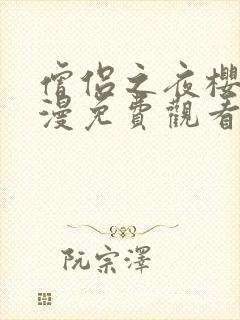 僧侶之夜櫻
漫免費觀看
阮宗澤